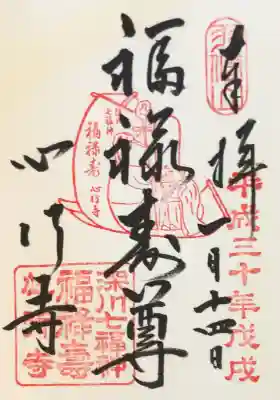 奉拝
平成三十年戊戌
一月十四日
福禄寿尊
心行寺
深川
七福神
福禄寿
心行寺
深川七福神
福禄壽
心行寺